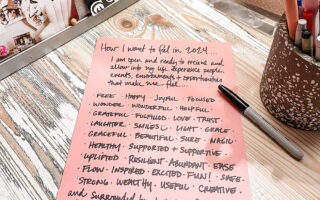 How I want to feel in 2024...
I am open and ready to receive and
allow into my life experience people,
events, environments + opportunities
that make me feel...
FREE · HAPPY · JOYFUL · FOCUSED
WONDER · WONDERFUL · HELPFUL ·
GRATEFUL · FULFILLED · LOVE · TRUST
LAUGHTER · SMILES · LIGHT · GRACE ·
GRACEFUL · BEAUTIFUL · SURE · MAGIC ·
HEALTHY · SUPPORTED + SUPPORTIVE ·
UPLIFTED · RESILIENT · ABUNDANT · EASE
· FLOW · INSPIRED · EXCITED · FUN! · SAFE ·
STRONG · WEALTHY · USEFUL · CREATIVE
and surrounded